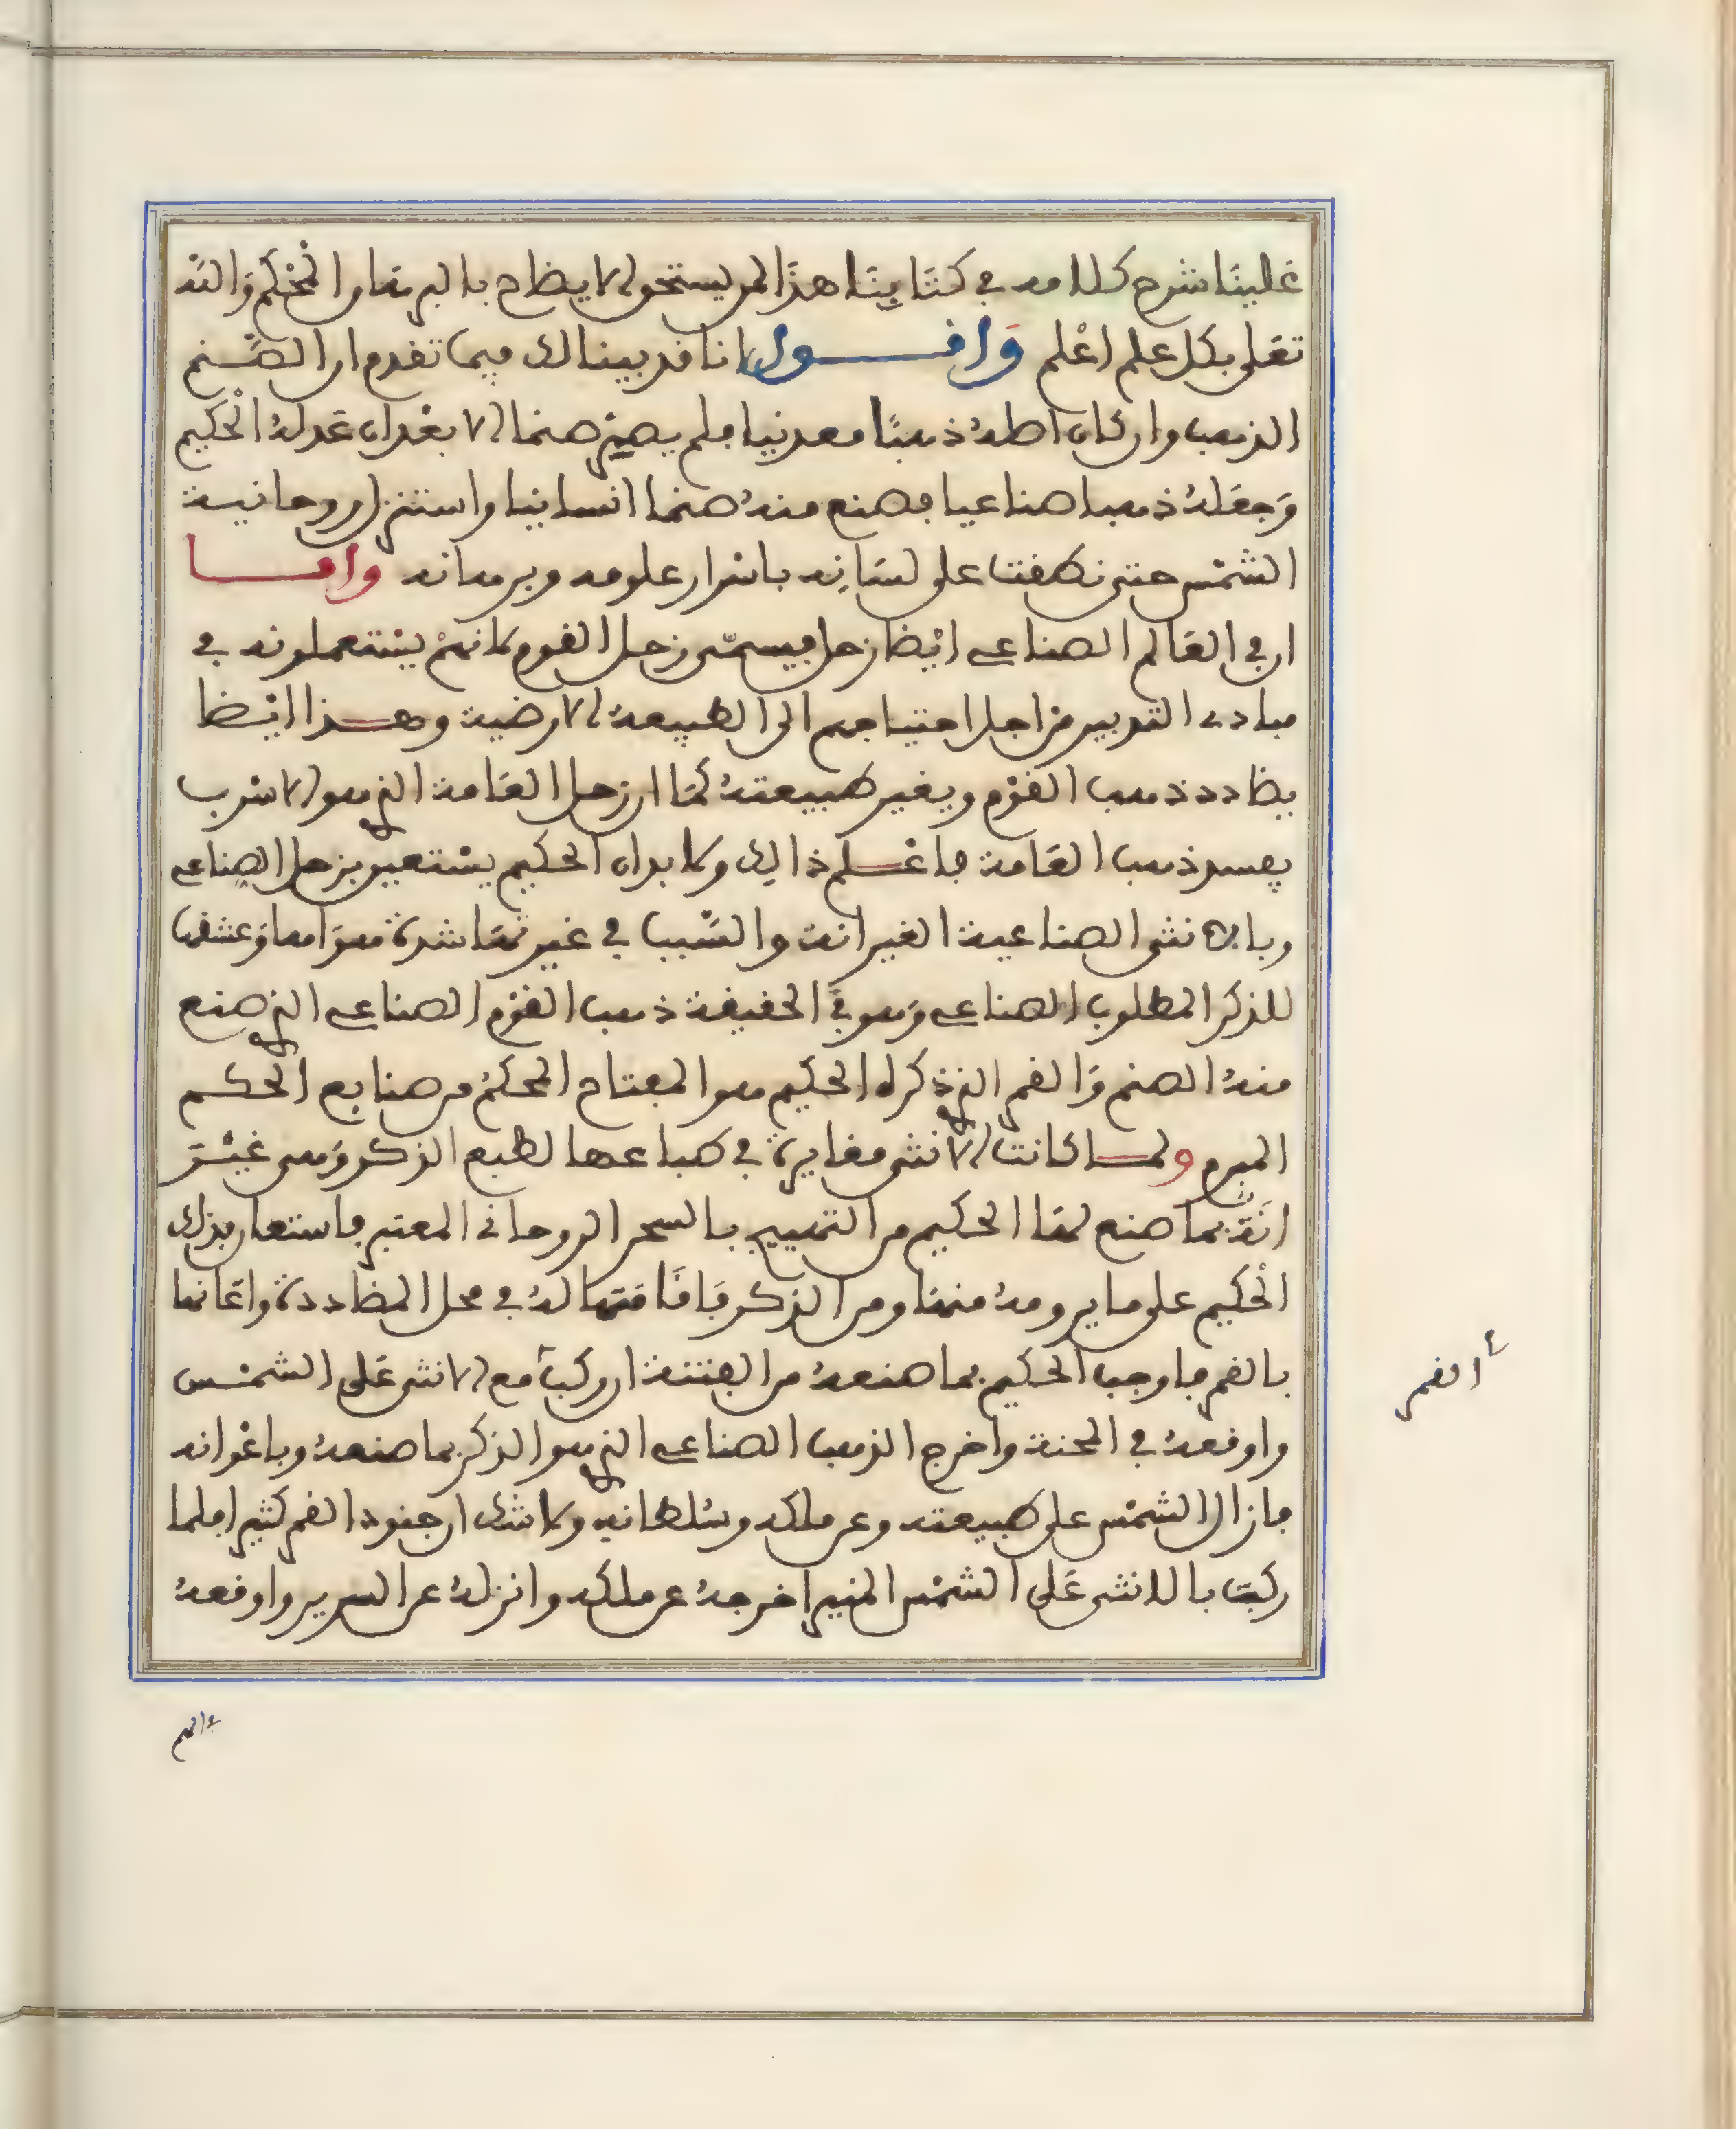 علينا شرح كلامه في كتابنا هذا لمن يستحق الايضاح بالبرهان المحكم والله
تعلى بكل علم اعلم واقول انا قد بينا لك فيما تقدم ان الصنم
الذهب وان كان اصله ذهبا معدنيا فلم يصر صنما الا بعد ان عدله الحكيم
وجعله ذهبا صناعيا فصنع منه صنما انسانيا واستنزل روحانية
الشمس حتى نطفت على لسانه باسرار علومه وبرهانه واما
ان في العالم الصناعي ايضا زحل فيسمى زحل القوم لانهم يستعملونه في
مبادي التدبير من اجل احتياجهم الى الطبيعة الارضية وهذا ايضا
يضادد ذهب القوم ويغير طبيعته كما ان زحل العامة الذي هو الاسرب
يفسد ذهب العامة فاعلم ذالك ولا بد ان الحكيم يستعين بزحل الصناعي
وبالانثى الصناعية الغير انقة والسبب في غير تها شدة هواها وعشقها
للذكر المطلوب الصناعي وهو في الحقيقة ذهب القوم الصناعي الذي صنع
منه الصنم والقمر الذي ذكره الحكيم هو المفتاح المحكم من صنايع الحكم
المبرم ولما كانت الانثى مغايرة في طباعها لطبع الذكر وهي غير
انقة بما صنع لها الحكيم من التهييج بالسحر الروحاني المعتبر فاستعان بذلك
الحكيم على ما يرومه منها ومن الذكر فاقامتها له في محل المضاددة واعانها
بالقمر فاوجب الحكيم بما صنعه من الفتنة ان ركب مع الانثى على الشمس
واوقعه في المحنة واخرج الذهب الصناعي الذي هو الذكر بما صنعه وباعوانه
فازال الشمس على طبيعته وعن ملكه وسلطانه ولا شك ان جنود القمر كثير فلما
ركب بالانثى على الشمس المنير اخرجه عن ملكه وانزله عن السرير واوقعه
القمر